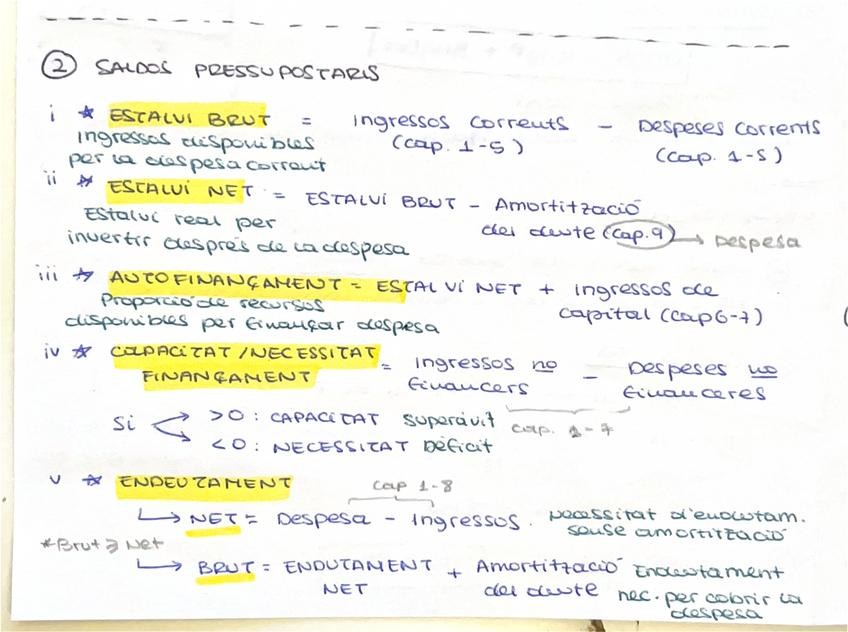 2 SALDOS PRESSUPOSTARIS
i * ESTALVI BRUT = Ingressos corrents - Despeses corrents
Ingressos disponibles (cap. 1-5) (cap. 1-5)
per la despesa corrent
ii * ESTALVI NET = ESTALVI BRUT - Amortització
Estalvi real per del deute (cap. 9) → Despesa
invertir després de la despesa
iii * AUTOFINANÇAMENT = ESTALVI NET + Ingressos de
Proporció de recursos capital (cap 6-7)
disponibles per finançar despesa
iv * CAPACITAT/NECESSITAT = Ingressos no - Despeses no
FINANÇAMENT financers financeres
Si > 0 : CAPACITAT superàvit cap. 1-7
< 0 : NECESSITAT Dèficit
v * ENDEUTAMENT cap 1-8
↳ NET = Despesa - Ingressos. Necessitat d'endeutam.
sense amortització
*Brut ≥ Net
↳ BRUT = ENDUTAMENT + Amortització Endeutament
NET del deute nec. per cobrir la
despesa